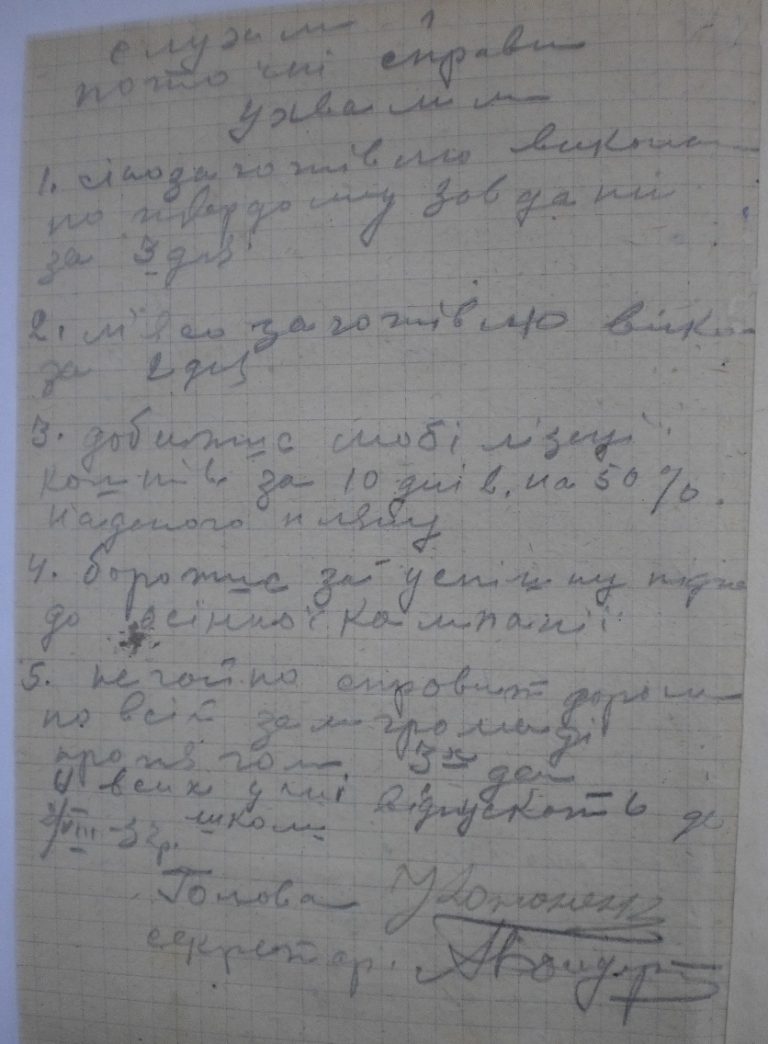 слухали
поточні справи
Ухвалили
1. сінозаготівлю викона
по твердому завданні
за 3 дні
2. м'ясозаготівлю вико
за 2 дні
3. добитись мобілізації
коштів за 10 днів, на 50%.
наданого пляну
4. боротись за успішну підго
до осінньої кампанії
5. негайно справит дороги
по всій земгромаді
протягом 3х ден
всих учні відпускать до
школи
VIII-32р.
Голова
секретар.